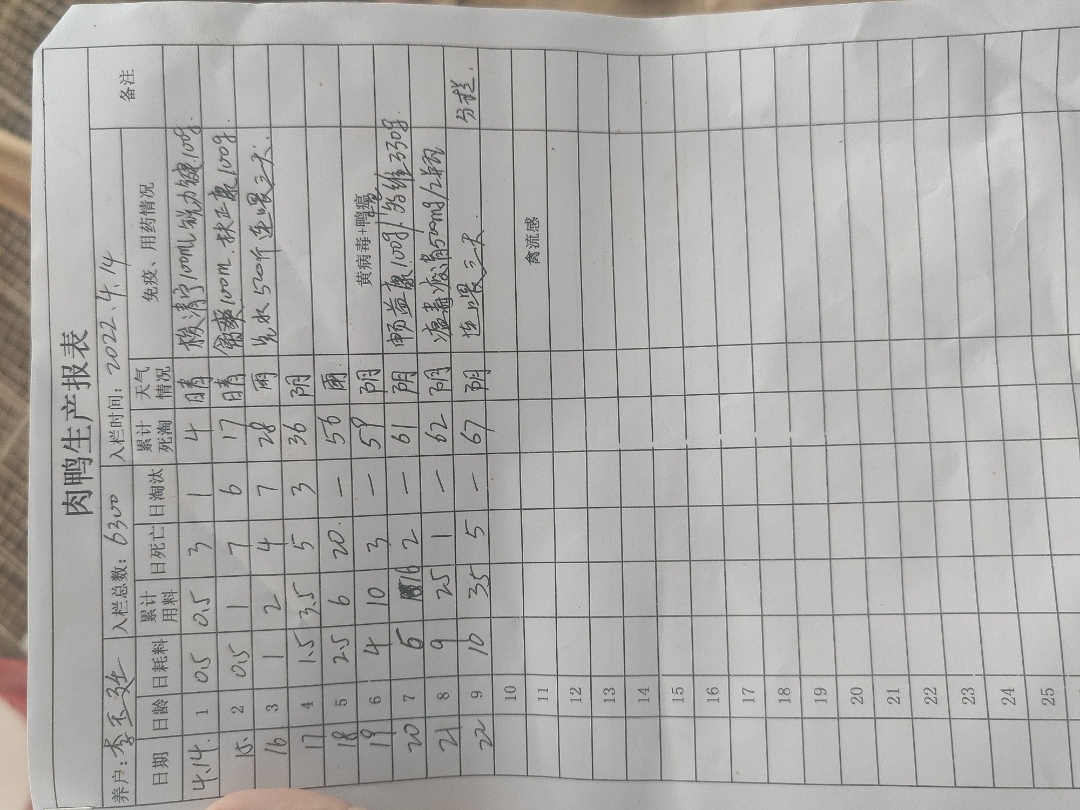 肉鸭生产报表
养户: 李玉廷 入栏总数: 6300 入栏时间: 2022.4.14
日期 日龄 日耗料 累计用料 日死亡 日淘汰 累计死淘 天气情况 免疫、用药情况 备注
4.14. 1 0.5 0.5 3 1 4 晴 100mL 100g.
15. 2 0.5 1 7 6 17 晴 100m. 扶正康100g.
16. 3 1 2 4 7 28 雨 兑水520斤连喂三天.
17 4 1.5 3.5 5 3 36 阴
18 5 2.5 6 20. — 56 雨.
19 6 4 10 3 — 59 阴 黄病毒+鸭瘟
20 7 6 16 2 — 61 阴 畅益康100g/多维330g
21 8 9 25 1 — 62 阴 瘟毒 清500mg/2瓶
22 9 10 35 5 — 67 阴 连喂三天. 分栏.
10
11 禽流感
12
13
14
15
16
17
18
19
20
21
22
23
24
25